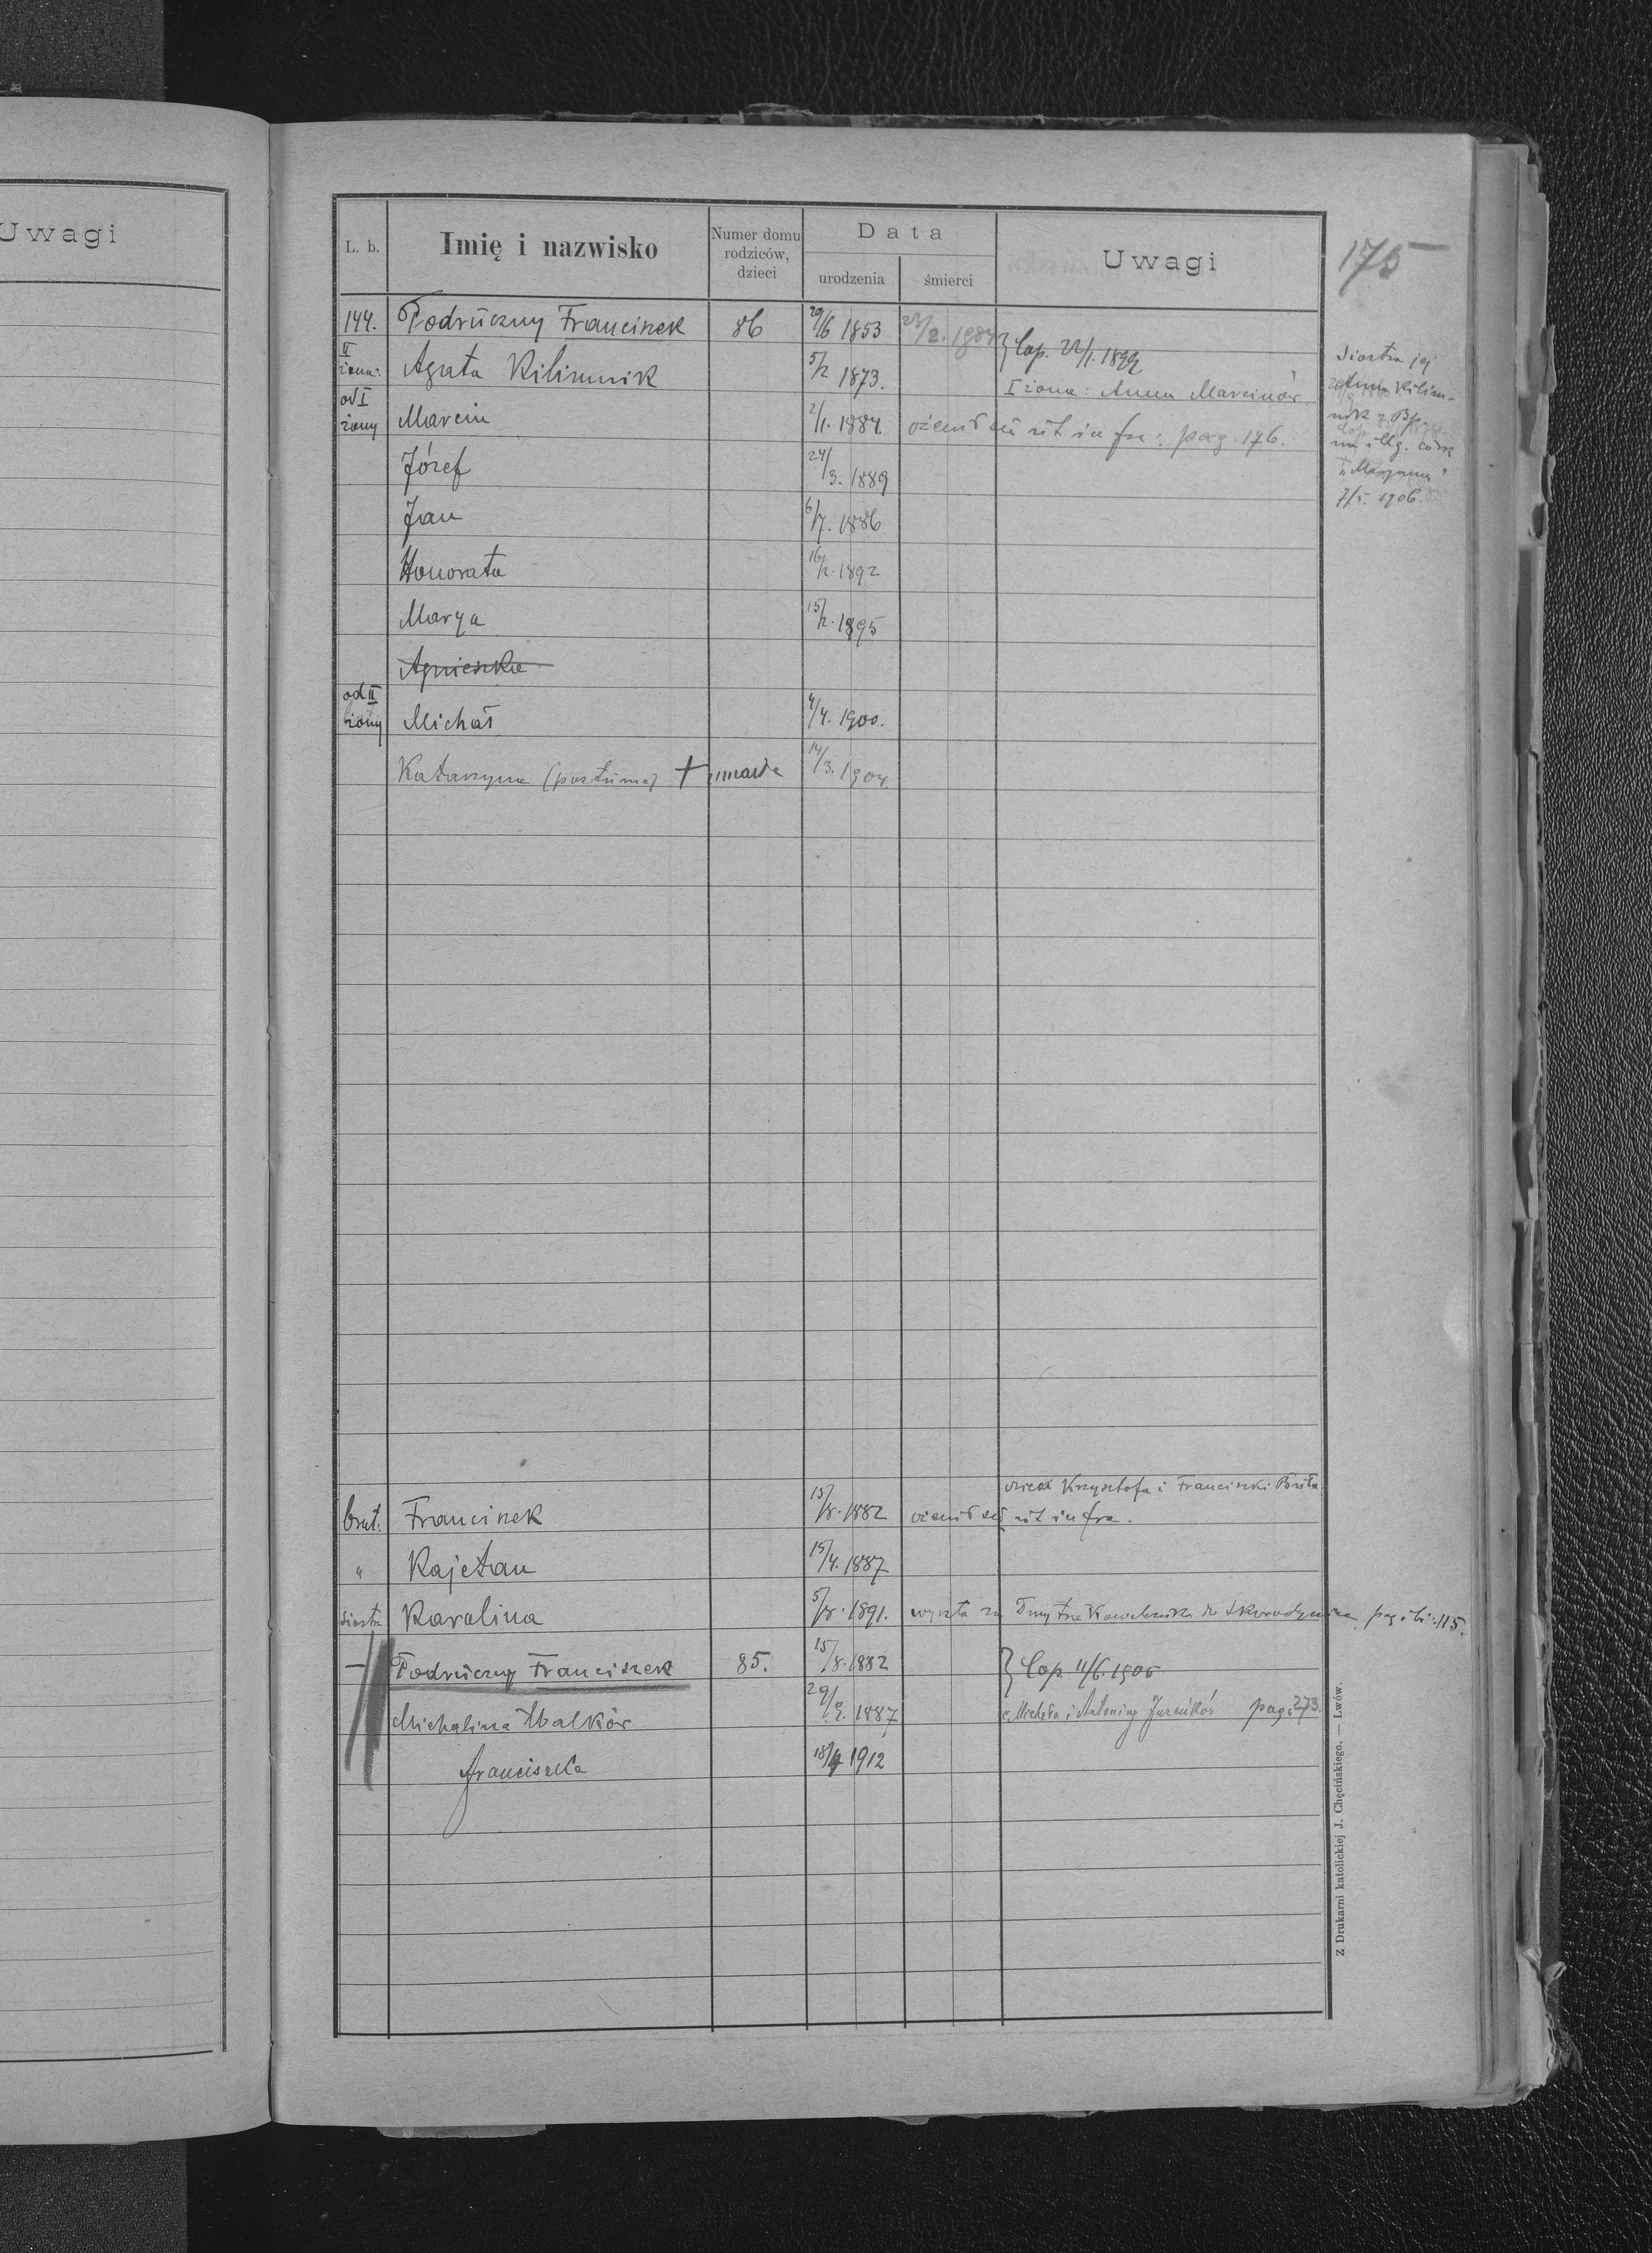 Uwagi
175
L. b. Imię i nazwisko Numer domu rodziców, dzieci Data urodzenia śmierci Uwagi
144. Podrüczny Franciszek 86 29/6 1853 23/2. 1904 } Cop. 22/1. 1899
II żona: Agata Kilimnik 5/2 1873. I żona: Anna Marcinów.
od I żony Marcin 2/1. 1884. ożenił się ut infra: pag. 176.
Józef 24/3. 1889
Jan 6/7. 1886
Honorata 16/2. 1892
Marya 15/2. 1895
Agnieszka
od II żony Michał 4/4. 1900.
Katarzyna (postuma) + zmarła 14/3. 1904.
Siostra jej
Anna Kilim-
nik
córk
"Maryanna"
7/5. 1906.
dzieci Krzysztofa i Franciszki
brat. Franciszek 15/8. 1882 ożenił się ut infra.
" Kajetan 15/4. 1887
siostra Karolina 5/8. 1891. wyszła za Dmytra Kowalczuka do Skorodyniec pag. ibi: 115.
Podrüczny Franciszek 85. 15/8. 1882 } Cop. 11/6. 1906
Michalina Walków 29/9. 1887 c. Michała i Antoniny pag. 273.
Franciszka 18/4 1912
Z Drukarni katolickiej J. Chęcińskiego. — Lwów.